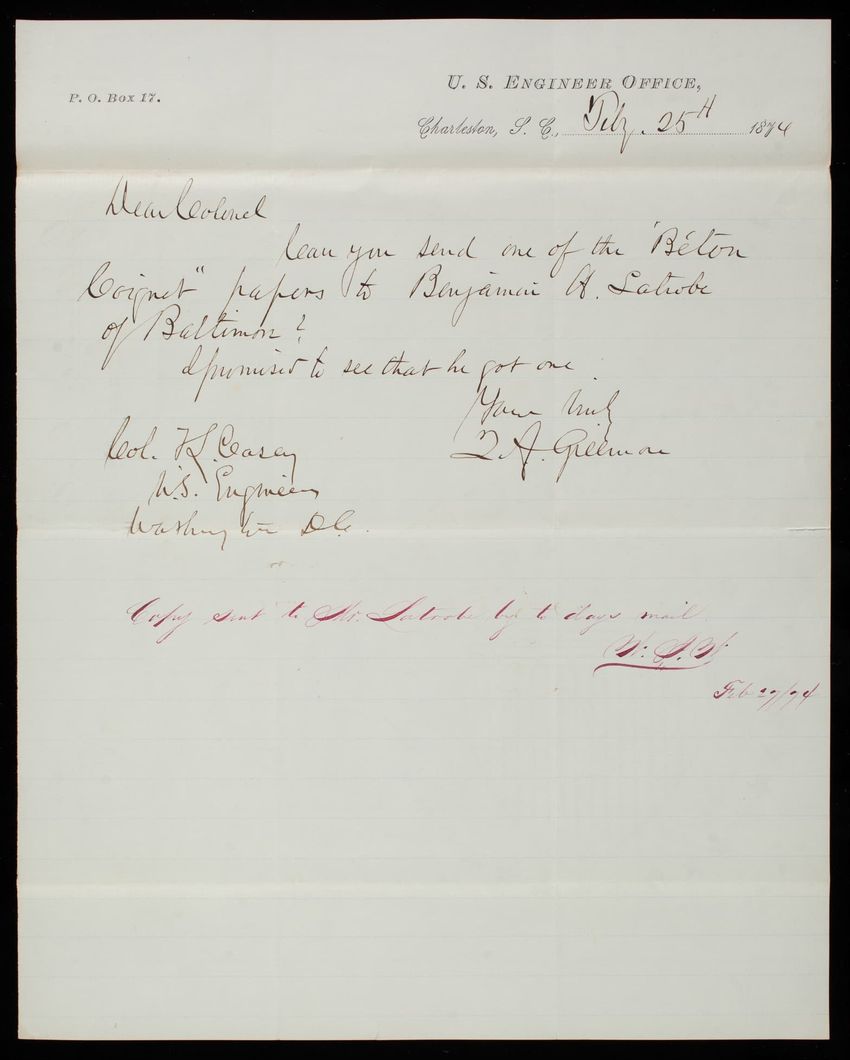 P. O. Box 17.
U. S. ENGINEER OFFICE,
Charleston, S. C., Feby. 25th 1874
Dear Colonel
Can you send one of the "Béton
Coignet" papers to Benjamin H. Latrobe
of Baltimore?
I promised to see that he got one.
Yours truly
Q. A. Gillmore
Col. T. L. Casey
U.S. Engineers
Washington D.C.
Copy sent to Mr. Latrobe by to days mail.
Feb 27/74